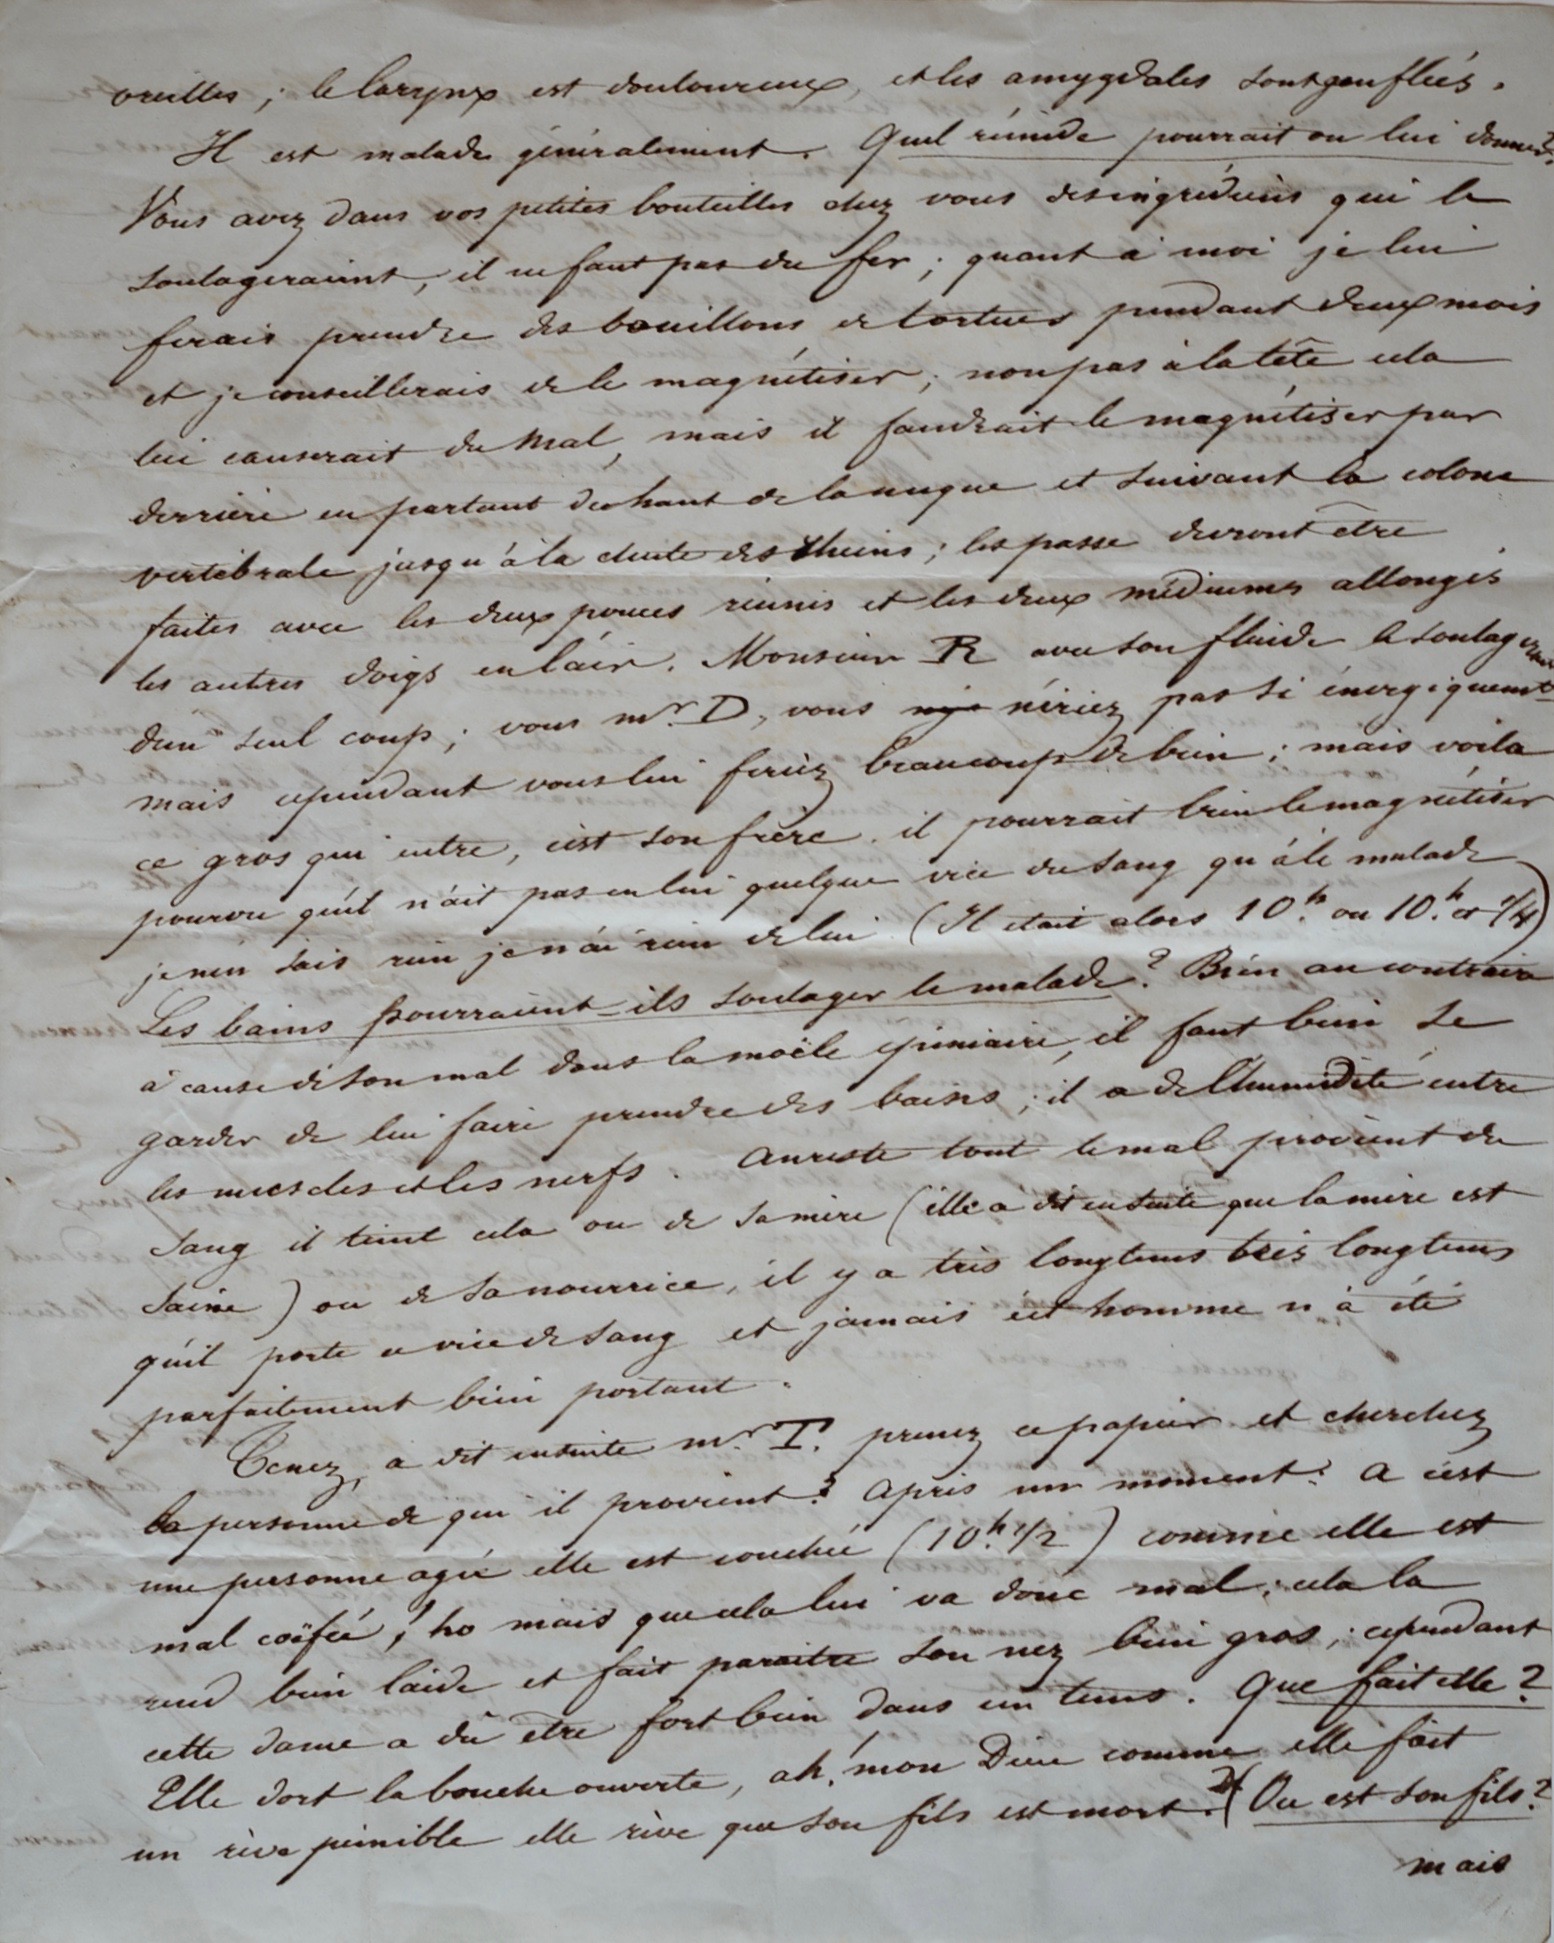 oreilles ; le larynx est douloureux, et les amygdales sont gonfleés.
Il est malade généralement. Quel réméde pourrait on lui donner?
Vous avez dans vos petites bouteilles chez vous des ingrédiens qui le
soulageraient, il ne faut pas du fer ; quant à moi je lui
ferais prendre des bouillons de tortues pendant deux mois
et je conseillerais de le magnétiser ; non pas à la tête cela
lui causerait du mal, mais il faudrait le magnétiser par
derriere en partant du haut de la nuque et suivant la colone
vertébrale jusqu'à la chute des rheins ; les passe devront être
faites avec les deux pouces réunis et les deux médiums allongés
les autres doigs en l'air. Monsieur R avec son fluide le soulagerait
d'un seul coup ; vous mr D, vous n'iriez pas si énergiquement
mais cependant vous lui feriez beaucoup de bien ; mais voila
ce gros qui entre, c'est son frère. il pourrait bien le magnétiser
pourvu qu'il n'ait pas en lui quelque vice du sang qu'à le malade
je n'en sais rien je n'ai rien de lui (Il etait alors 10h. ou 10h. et 1/4)
Les bains pourraient-ils soulager le malade? Bien au contraire
à cause de son mal dans la moële épiniaire, il faut bien se
garder de lui faire prendre des bains ; il a de l'humidité entre
les muscles et les nerfs. Au reste tout le mal provient du
sang il tient cela ou de sa mère (elle a dit ensuite que la mère est
saine) ou de sa nourrice, il y a très longtems très longtems
qu'il porte ce vice de sang et jamais cet homme n'à été
parfaitement bien portant.
Tenez, a dit ensuite mr. T. prenez ce papier et cherchez
la personne de qui il provient? Après un moment : a c'est
une personne ageé elle est couchée (10h. 1/2) comme elle est
mal coïfeé ! ho mais que cela lui va donc mal ; cela la
rend bien laide et fait paraitre son nez bien gros ; cependant
cette dame a dû être fort bien dans un tems. Que fait elle?
Elle dort la bouche ouverte, ah! mon Dieu comme elle fait
un rève peinible elle rève que son fils est mort. (Ou est son fils?
mais